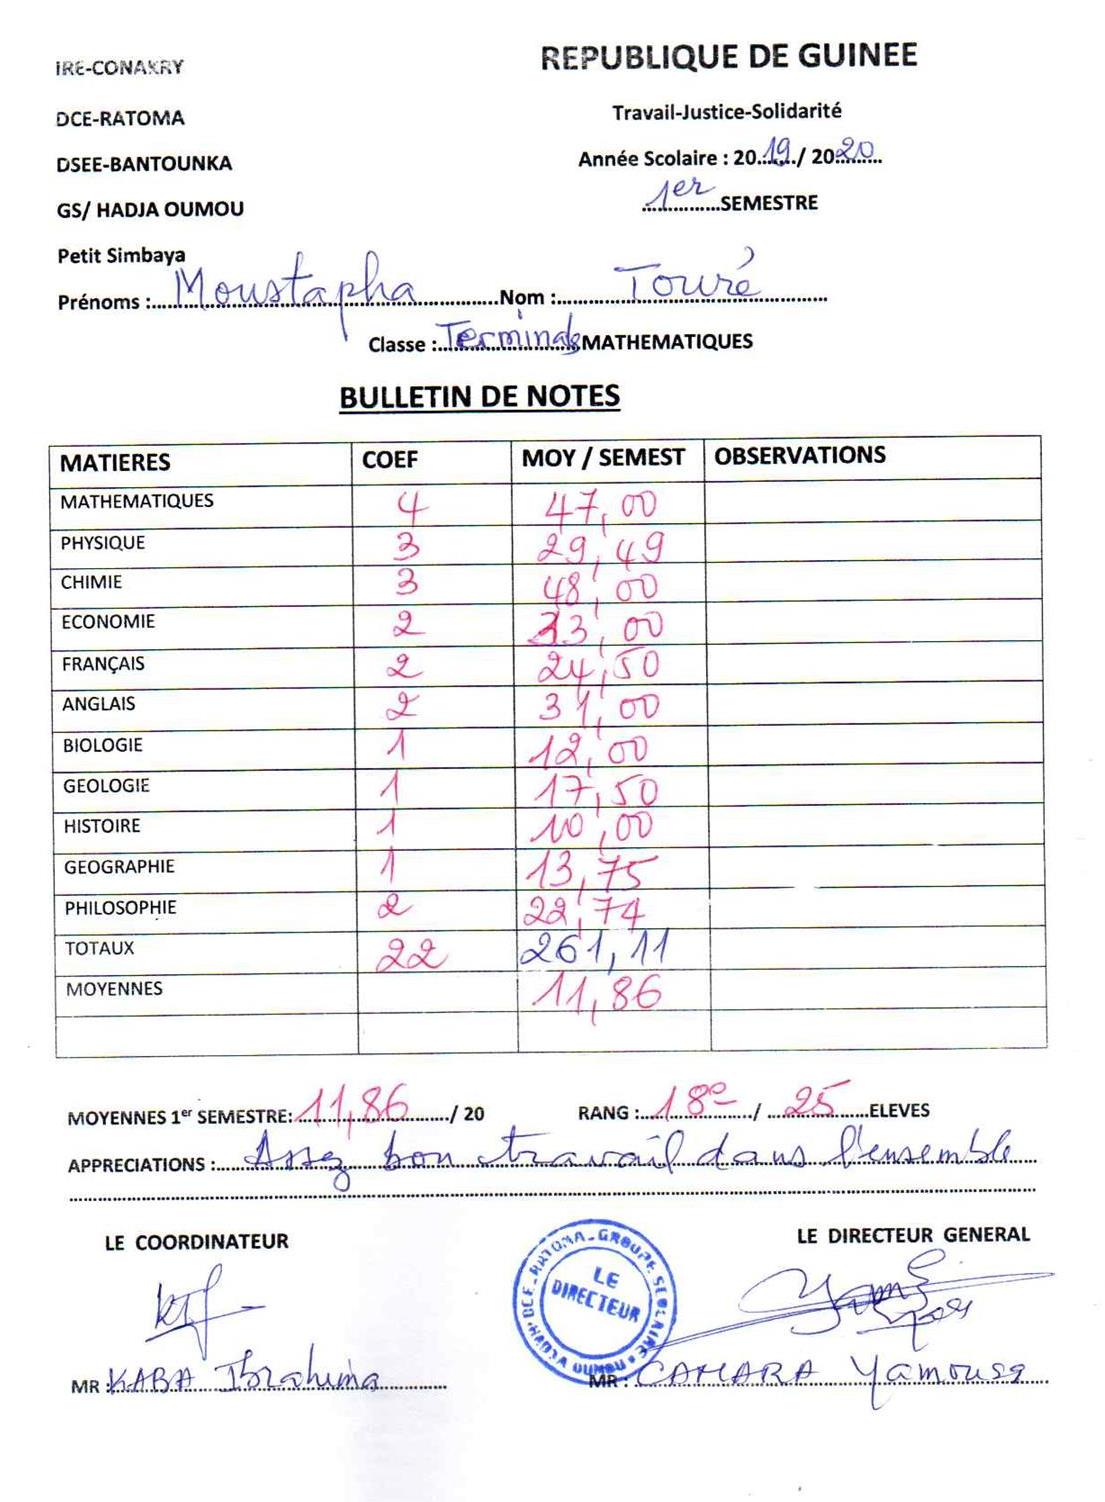 IRE-CONAKRY
REPUBLIQUE DE GUINEE
DCE-RATOMA
Travail-Justice-Solidarité
DSEE-BANTOUNKA
Année Scolaire : 20.19./ 2020
GS/ HADJA OUMOU
1er SEMESTRE
Petit Simbaya
Prénoms : Moustapha Nom : Touré
Classe : Terminale MATHEMATIQUES
BULLETIN DE NOTES
MATIERES COEF MOY / SEMEST OBSERVATIONS
MATHEMATIQUES 4 47,00
PHYSIQUE 3 29,49
CHIMIE 3 48,00
ECONOMIE 2 33,00
FRANÇAIS 2 24,50
ANGLAIS 2 31,00
BIOLOGIE 1 12,00
GEOLOGIE 1 17,50
HISTOIRE 1 10,00
GEOGRAPHIE 1 13,75
PHILOSOPHIE 2 22,74
TOTAUX 22 261,11
MOYENNES 11,86
MOYENNES 1er SEMESTRE: 11,86 / 20 RANG : 18e / 25 ELEVES
APPRECIATIONS : Assez bon travail dans l'ensemble
LE COORDINATEUR
LE DIRECTEUR GENERAL
DCE-RATOMA-GROUPE SCOLAIRE HADJA OUMOU
LE DIRECTEUR
MR : KABA Ibrahima
MR : CAMARA Yamoussa